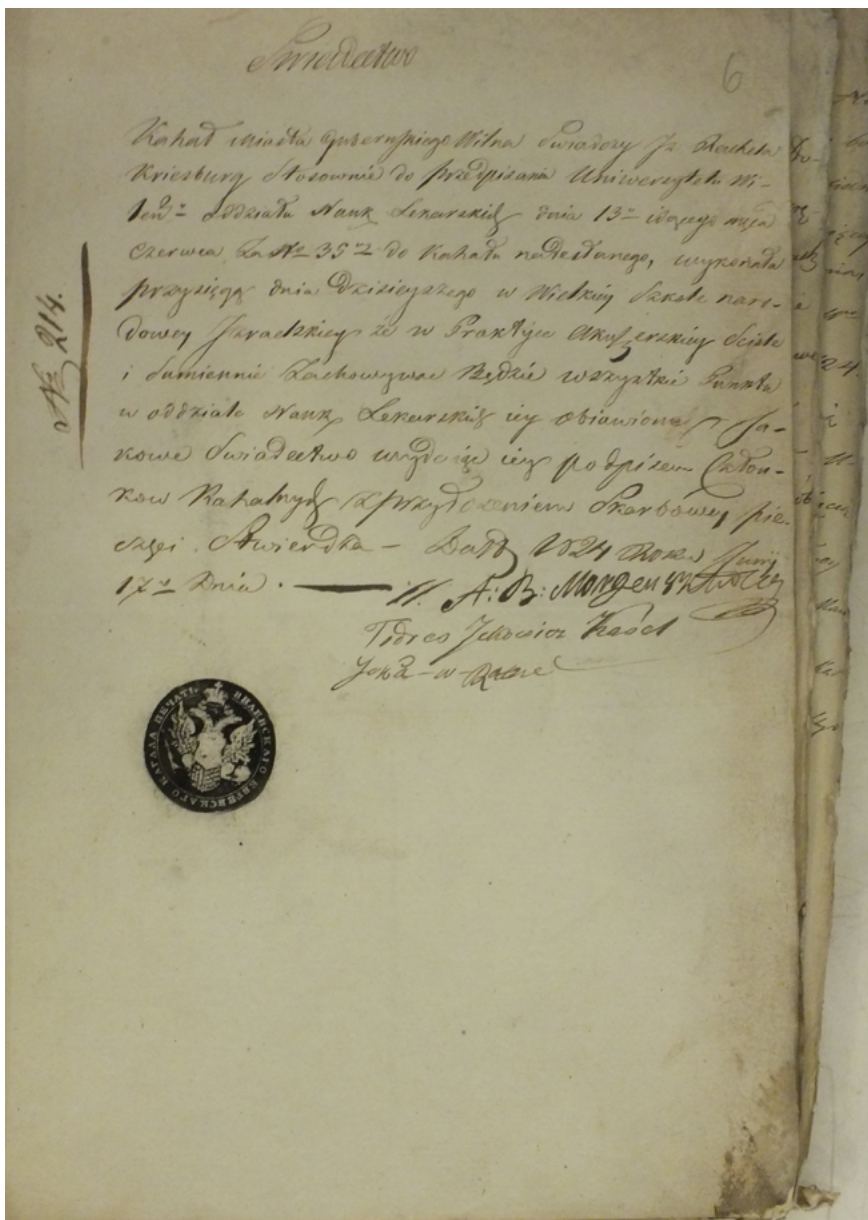 Swiadectwo
6
Kahał miasta Gubernskiego Wilna Swiadczy Jz Rachela
Kriezburg Stosownie do przedpisania Uniwersytetu Wi-
leń⁰ Oddziału Nauk Lekarskich dnia 13⁰ idącego msca
Czerwca za № 35 do Kahału nadesłanego, wykonała
przysięgę dnia Dzisieyszego w Wielkiey Szkole naro-
dowey Jzraelskiey że w Praktyce Akuszerskiey Sciśle
i Sumiennie Zachowywac Będzie wszystkie Punkta
w oddziale Nauk Lekarskich iey obiawione, Ja-
kowe Swiadectwo wydaiąc iey podpisem Człon-
kow Kahalnych z przyłożeniem Skarbowey pie-
częci Stwierdza — Datt 1824 Roku Junij
17⁰ Dnia. — A: B: Morgensztern
№ 214.
ПЕЧАТЬ ВИЛЕНСКАГО ЕВРЕЙСКАГО КАГАЛА